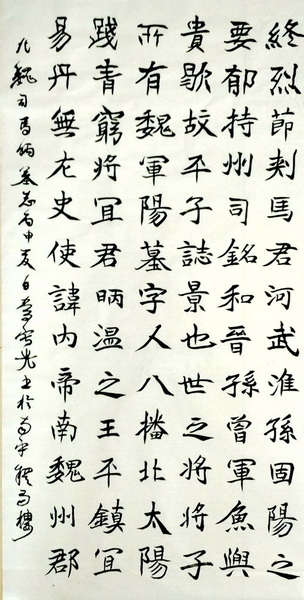 終烈節刺馬君河武淮孫固陽之
要郁持州司銘和晉孫曾軍魚興
貴歇故平子誌景也世之將將子
所有魏軍陽墓字人八橎北太陽
踐青窮將宜君昞溫之王平鎮宜
易丹無左史使諱內帝南魏州郡
魏司馬昞墓志丙申夏日於南寧樓